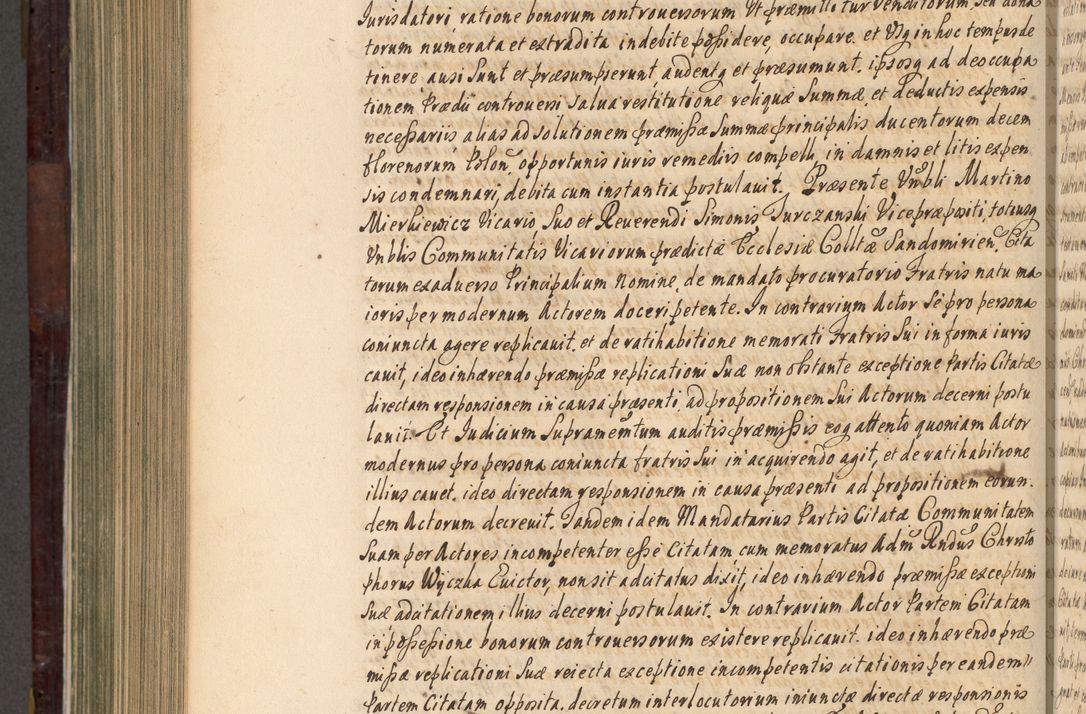 Jurisdatori ratione bonorum controuersorum Vt præmittitur venditorum, seu dona
torum numerata et extradita indebite possidere, occupare et Vsq in hoc tempus de
tinere ausi Sunt et præsumpserunt audentq et præsumunt. ipsosq ad deoccupa
tionem Prædii controuersi salua restitutione reliquæ Summæ, et deductis expensis
necessariis alias ad solutionem præmissæ Summæ principalis ducentorum decem
florenorum Polon. opportunis iuris remediis compelli, in damnis et litis expen
sis condemnari, debita cum instantia postulauit. Præsente Vnbli Martino
Mierkiewicz Vicario Suo et Reuerendi Simonis Jurczanski Vicepræpositi, totiusq
Vnblis Communitatis Vicariorum prædictæ Ecclesiæ Colltæ Sandomirien. Cita
torum ex aduerso Principalium nomine, de mandato procuratorio Fratris natu ma
ioris per modernum Actorem doceri petente. In contrarium Actor Se pro persona
coniuncta agere replicauit. et de ratihabitione memorati Fratris Sui in forma iuris
cauit, ideo inhærendo præmissæ replicationi Suæ non obstante exceptione Partis Citatæ
directam responsionem in causa præsenti ad propositionem Sui Actorum decerni postu
lauit. Et Judicium Supramentum auditis præmissis eoq attento quoniam Actor
modernus pro persona coniuncta fratris Sui in acquirendo agit, et de ratihabitione
illius cauet. ideo directam responsionem in causa præsenti ad propositionem eorun.
dem Actorum decreuit. Tandem idem Mandatarius Partis Citatæ Communitatem
Suam per Actores incompetenter esse Citatam cum memoratus Adm Rndus Christo
phorus Wyczka Euictor, non sit adcitatus dixit, ideo inhærendo præmissæ exceptioni
Suæ adcitationem illius decerni postulauit. In contrarium Actor Partem Citatam
in possessione bonorum controuersorum existere replicauit. ideo inhærendo præ
missæ replicationi Suæ reiecta exceptione incompetentis citationis per eandem
Partem Citatam opposita. decretum interlocutorium iniunctæ directæ responsionis